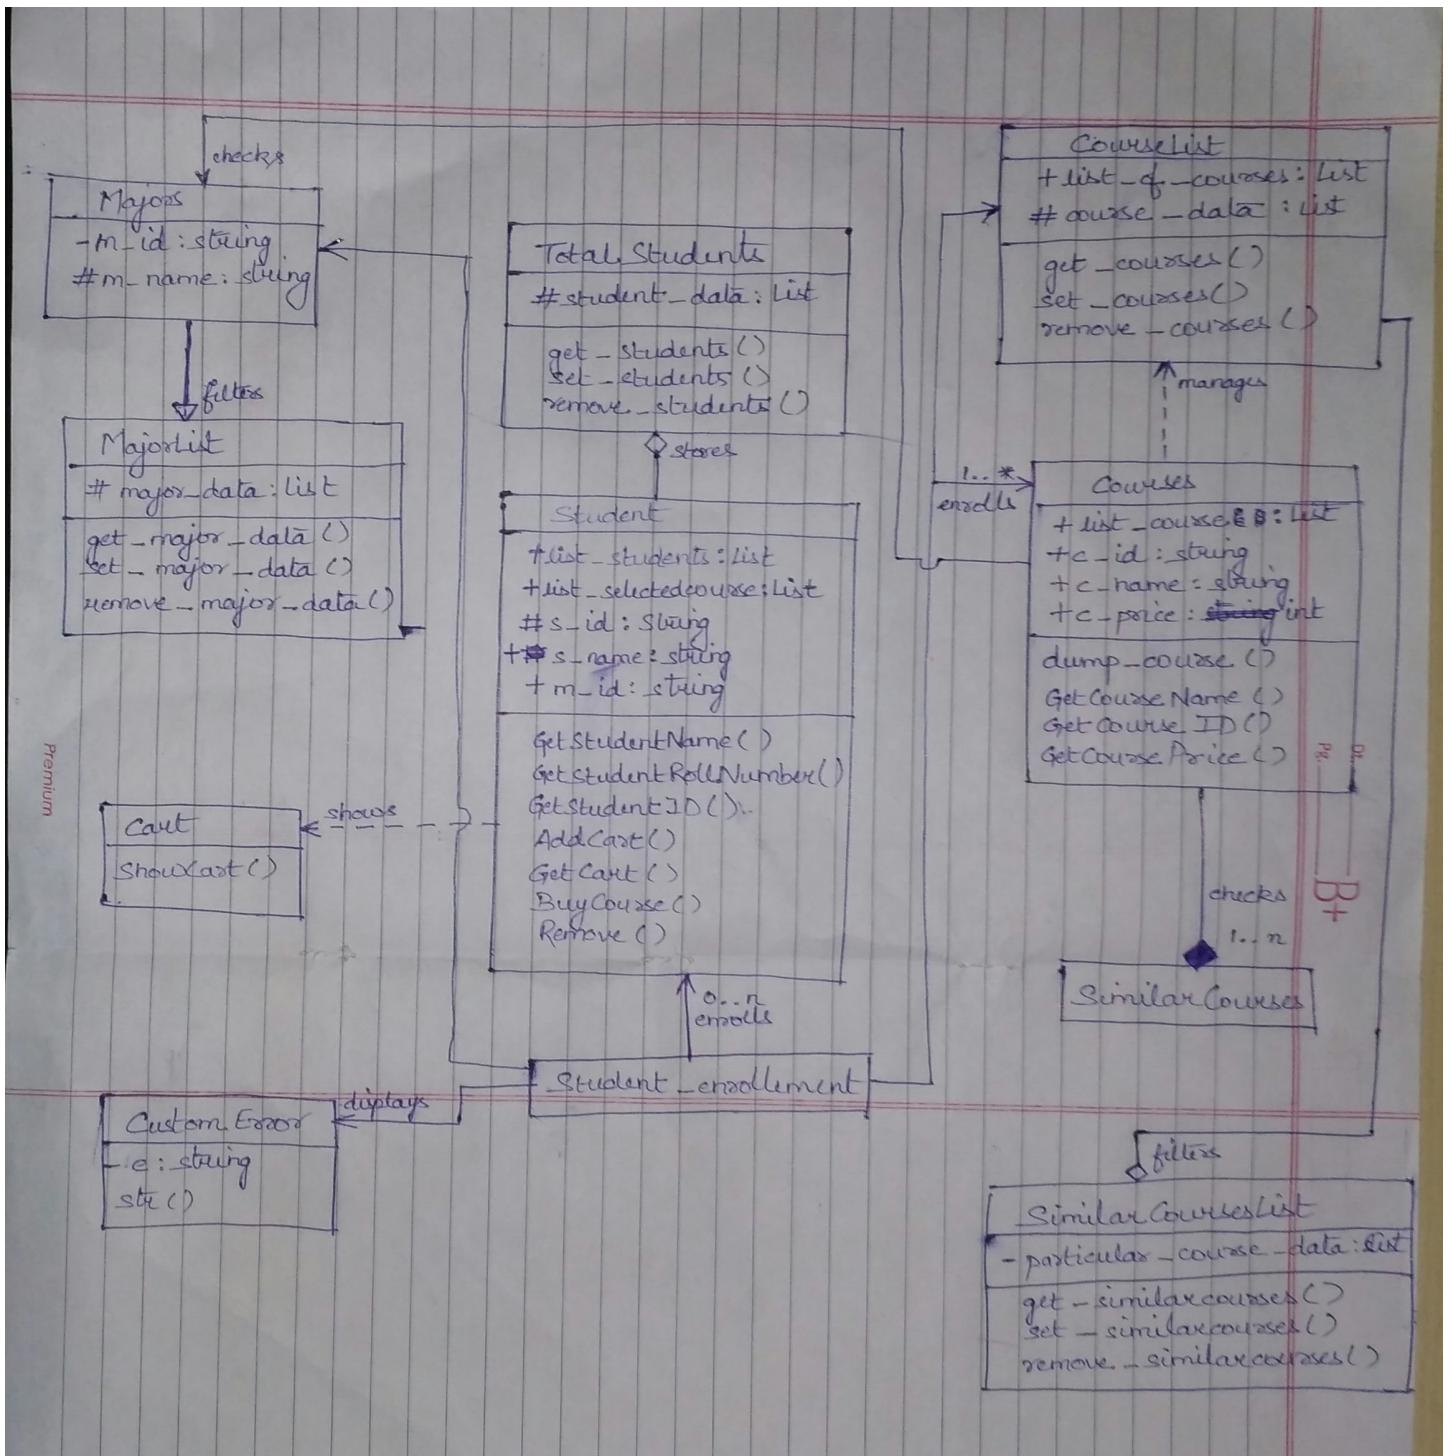 checks
Majors
-m_id : string
#m_name : string
filters
MajorList
# major_data : List
get_major_data()
set_major_data()
remove_major_data()
TotalStudents
#student_data : List
get_students()
set_students()
remove_students()
stores
Student
+list_students : List
+list_selectedcourse : List
#s_id : String
+s_name : string
+m_id : string
GetStudentName()
GetStudentRollNumber()
GetStudentID()
AddCart()
GetCart()
BuyCourse()
Remove()
shows
Cart
ShowCart()
0..n
enrolls
Student_enrollement
displays
Custom Error
- e : string
str()
CourseList
+list_of_courses : List
# course_data : List
get_courses()
set_courses()
remove_courses()
manages
1..*
enrolls
Courses
+list_course : List
+c_id : string
+c_name : string
+c_price : int
dump_course()
GetCourseName()
GetCourse ID()
GetCoursePrice()
checks
1..n
SimilarCourses
filters
SimilarCoursesList
- particular_course_data : List
get_similarcourses()
set_similarcourses()
remove_similarcourses()
Premium
Dt.
Pg.
B+